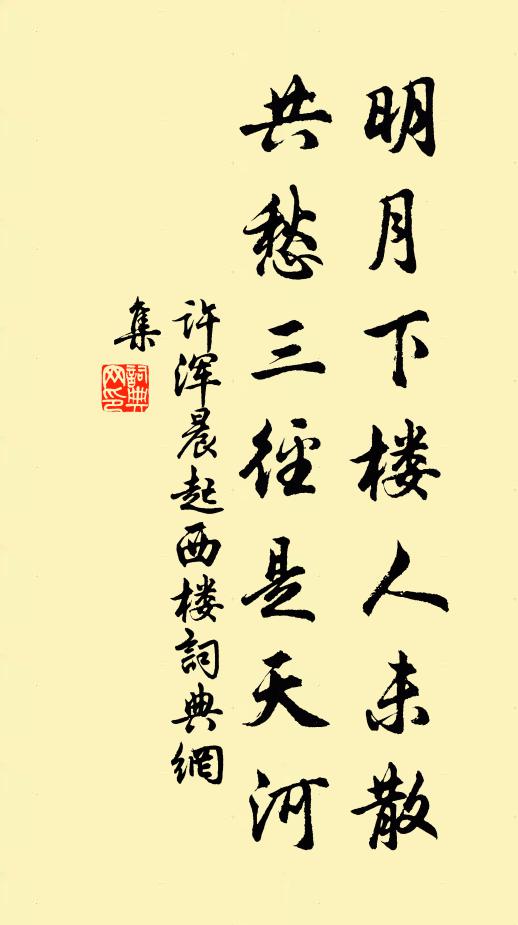 明月下楼人未散
共愁三径是天河
许浑晨起西楼詞典網
集
詞典
网印